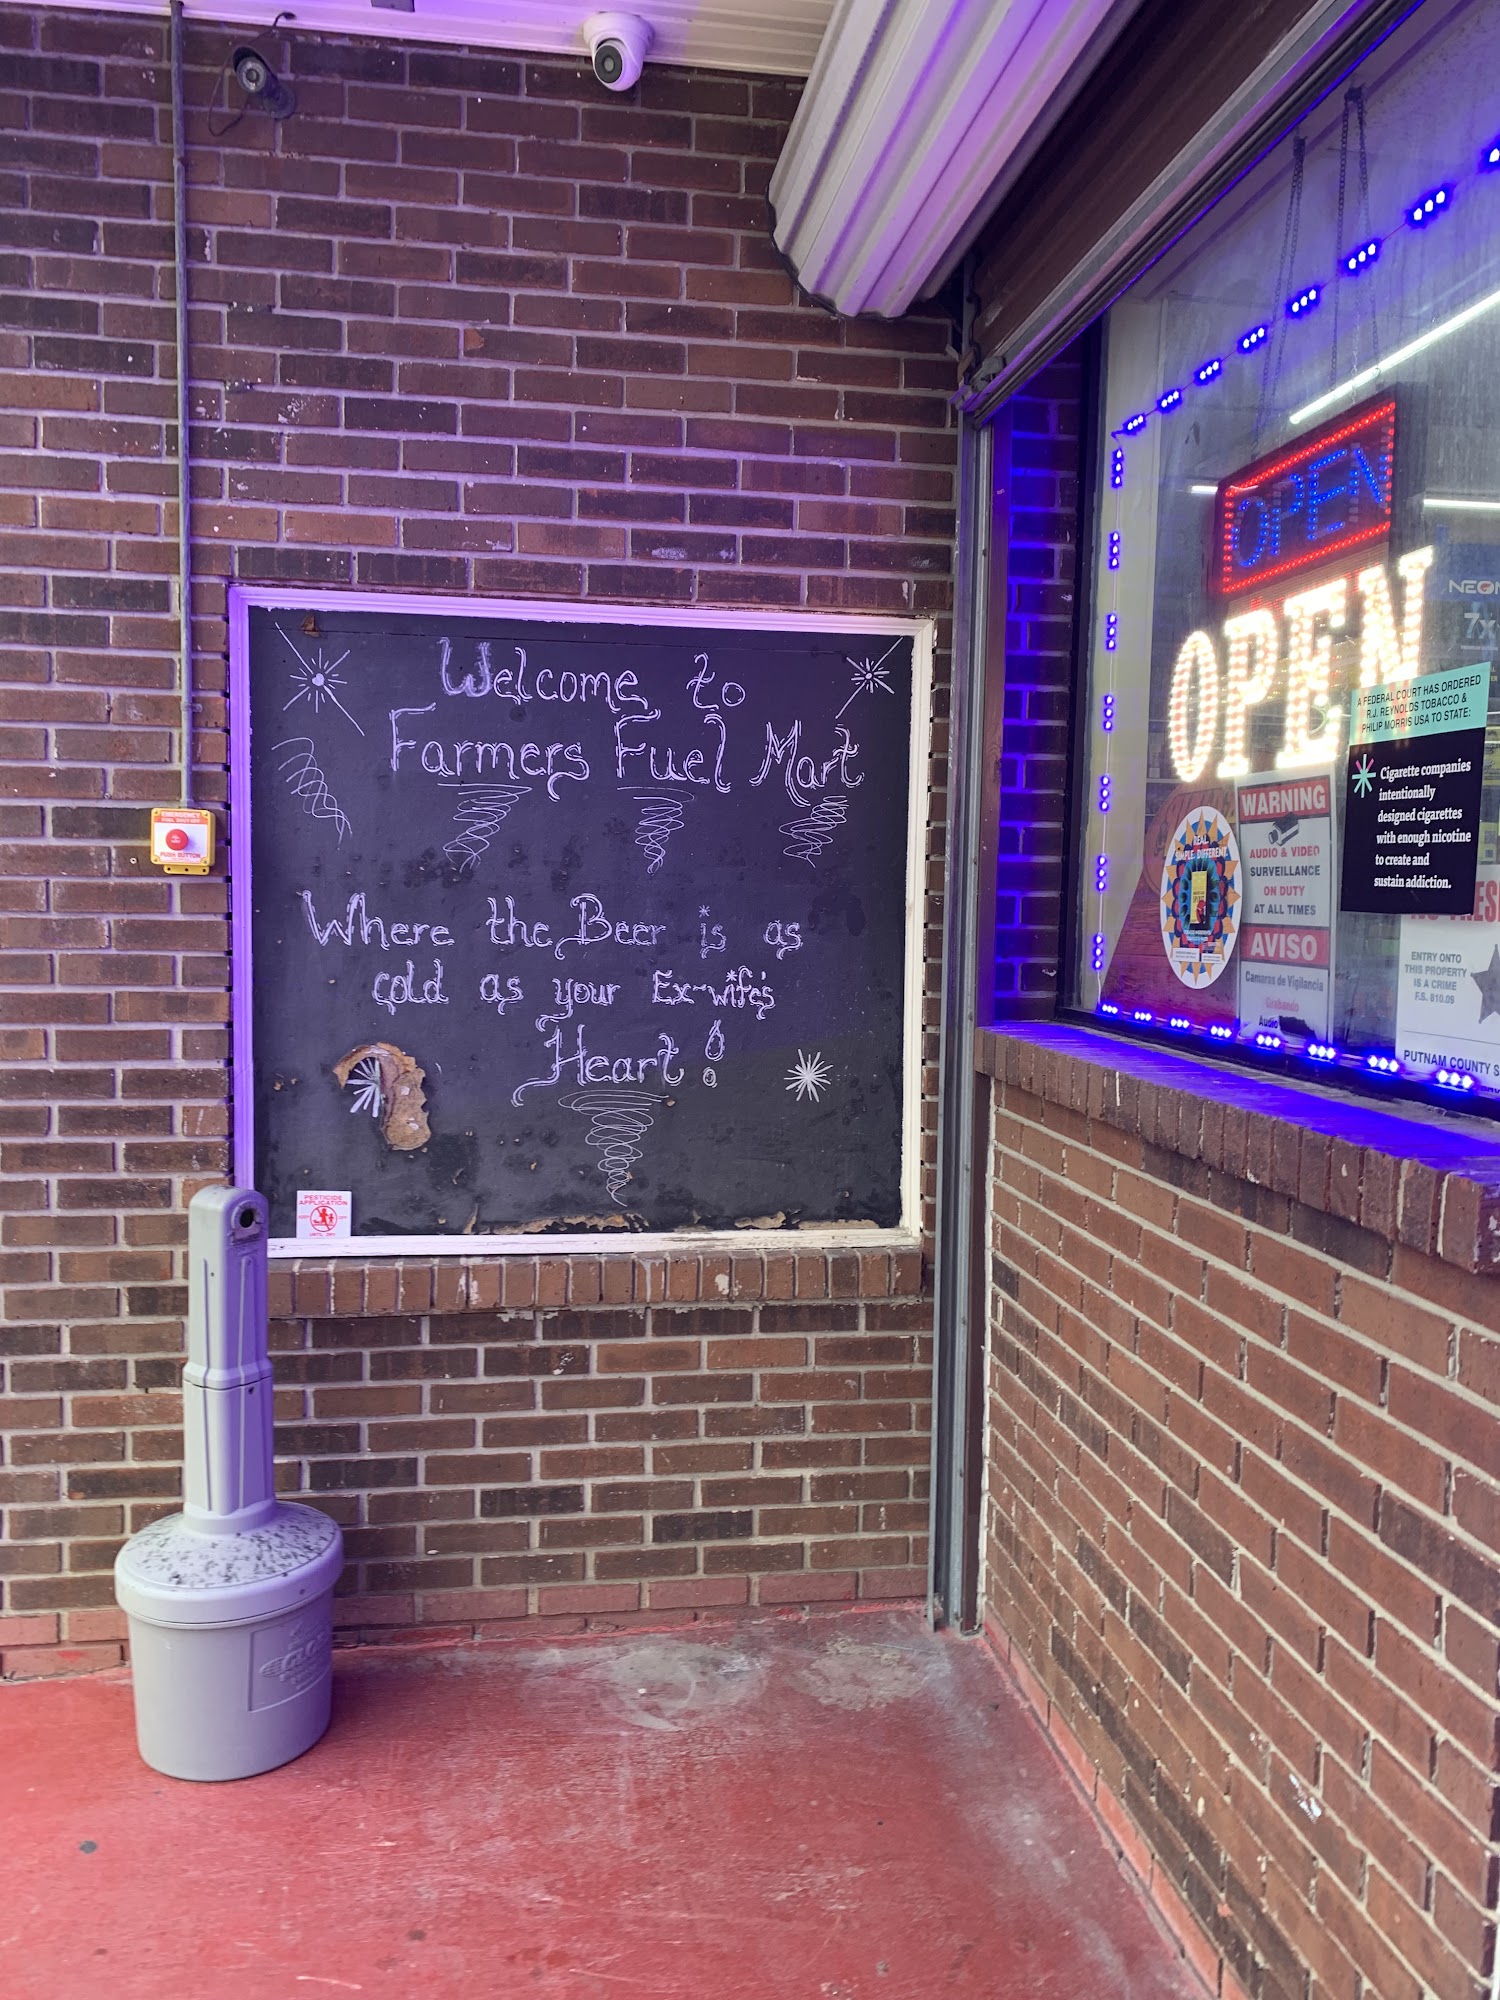 Welcome to
Farmers Fuel Mart
Where the Beer is as
cold as your Ex-wife's
Heart!
EMERGENCY
PUSH BUTTON
PESTICIDE
APPLICATION
KEEP OFF
UNTIL DRY
OPEN
OPEN
NEON
7x
A FEDERAL COURT HAS ORDERED
R.J. REYNOLDS TOBACCO &
PHILIP MORRIS USA TO STATE:
Cigarette companies
intentionally
designed cigarettes
with enough nicotine
to create and
sustain addiction.
REAL.
SIMPLE. DIFFERENT.
WARNING
AUDIO & VIDEO
SURVEILLANCE
ON DUTY
AT ALL TIMES
AVISO
Cámaras de Vigilancia
Grabando
Audio
ENTRY ONTO
THIS PROPERTY
IS A CRIME
F.S. 810.09
PUTNAM COUNTY S